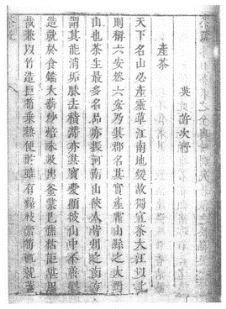 許次
產茶
天下名山必產靈草江南地煖故獨宜茶大江以北
則稱六安然六安乃其郡名其實產霍山縣之大蜀
山也茶生最多名品亦振河南山陝人皆用之南方
謂其能消垢膩去積滯亦共寶愛顧彼山中不善製
造就於食鐺大薪炒焙未及出釜業已焦枯詎堪用
哉兼以竹造巨笱乘熱便貯雖有綠枝紫筍輒就萎